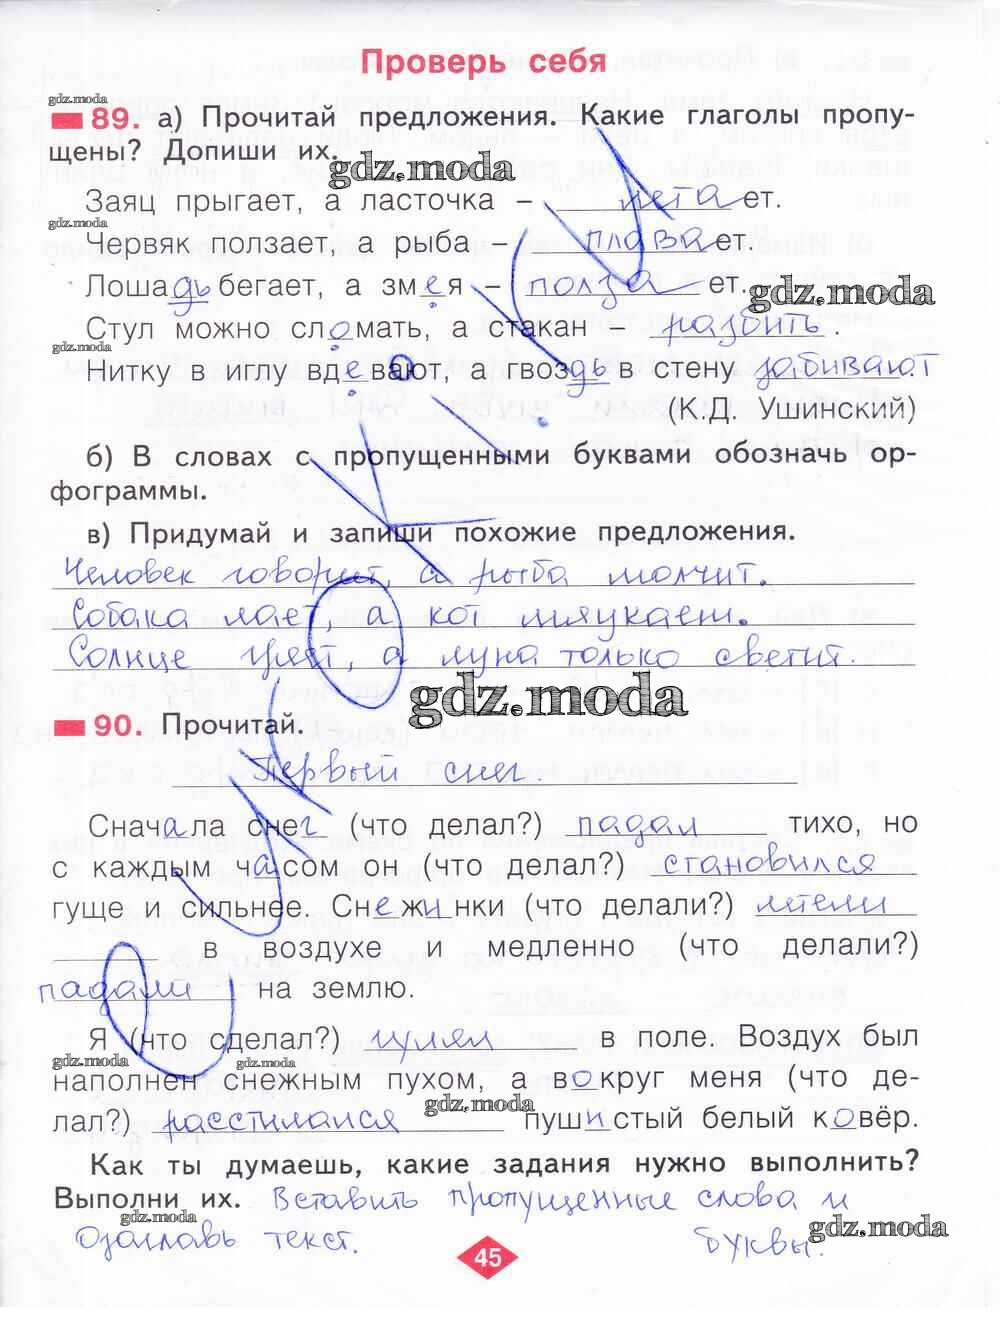 Проверь себя
gdz.moda
89. а) Прочитай предложения. Какие глаголы пропу-
щены? Допиши их.
gdz.moda
Заяц прыгает, а ласточка – летает.
gdz.moda
Червяк ползает, а рыба – плавает.
Лошадь бегает, а змея – ползает.
gdz.moda
Стул можно сломать, а стакан – разбить.
gdz.moda
Нитку в иглу вдевают, а гвоздь в стену забивают.
(К.Д. Ушинский)
б) В словах с пропущенными буквами обозначь ор-
фограммы.
в) Придумай и запиши похожие предложения.
Человек говорит, а рыба молчит.
Собака лает, а кот мяукает.
Солнце греет, а луна только светит.
gdz.moda
90. Прочитай.
Первый снег.
Сначала снег (что делал?) падал тихо, но
с каждым часом он (что делал?) становился
гуще и сильнее. Снежинки (что делали?) летели
в воздухе и медленно (что делали?)
падали на землю.
Я (что сделал?) гулял в поле. Воздух был
gdz.moda
gdz.moda
наполнен снежным пухом, а вокруг меня (что де-
gdz.moda
лал?) расстилался пушистый белый ковёр.
Как ты думаешь, какие задания нужно выполнить?
Выполни их. Вставить пропущенные слова и
буквы.
gdz.moda
gdz.moda
Озаглавь текст.
45